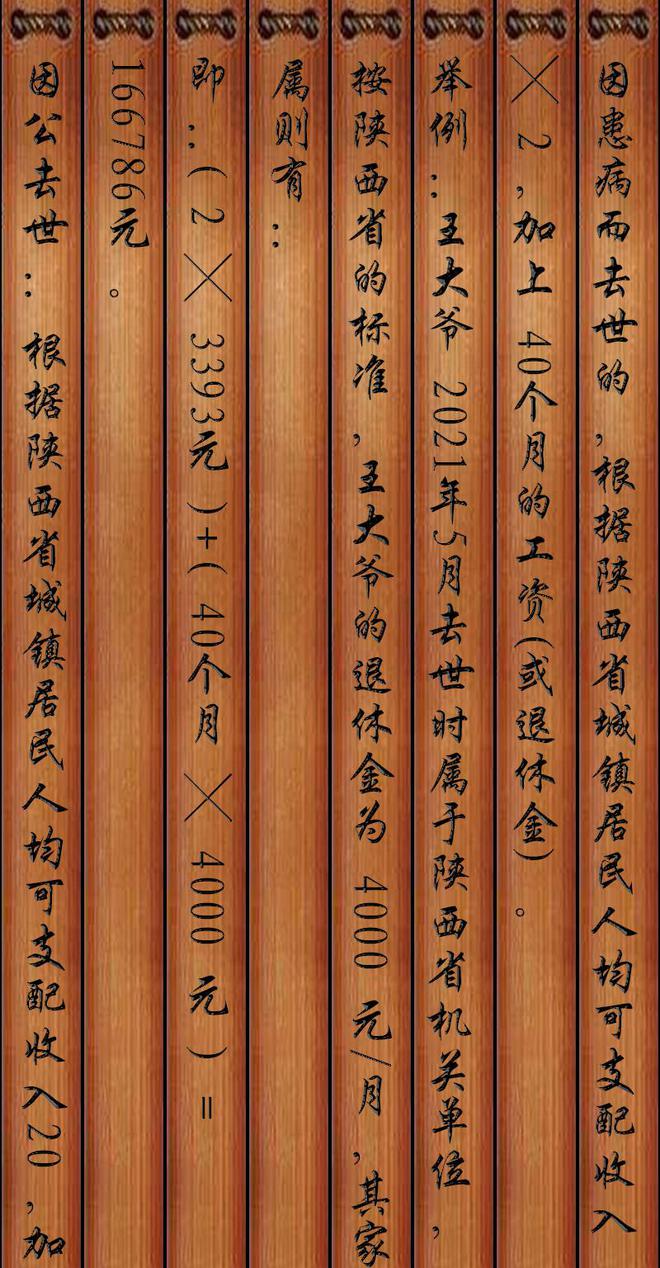 因患病而去世的,根据陕西省城镇居民人均可支配收入
× 2,加上 40个月的工资(或退休金)。
举例:王大爷 2021年5月去世时属于陕西省机关单位,
按陕西省的标准,王大爷的退休金为 4000 元/月,其家
属则有:
即:( 2 × 3393元 )+( 40个月 × 4000 元 ) =
166786元 。
因公去世: 根据陕西省城镇居民人均可支配收入20,加